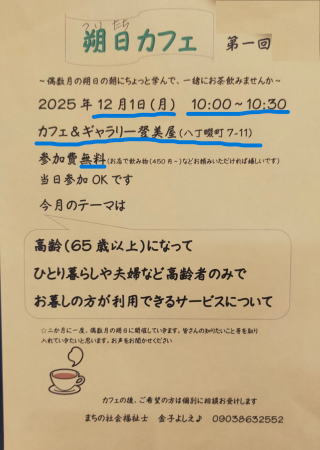 ついたち
朔日カフェ 第一回
~偶数月の朔日の朝にちょっと学んで、一緒にお茶飲みませんか~
2025年12月1日(月) 10:00~10:30
カフェ&ギャラリー登美屋(八丁畷町7-11)
参加費無料(お店で飲み物(450円~)などお頼みいただければ嬉しいです)
当日参加OKです
今月のテーマは
高齢(65歳以上)になって
ひとり暮らしや夫婦など高齢者のみで
お暮しの方が利用できるサービスについて
☆二か月に一度、偶数月の朔日に開催していきます。皆さんの知りたいこと等を取り
入れていきたいと思います。お声をお聞かせください
カフェの後、ご希望の方は個別に相談お受けします
まちの社会福祉士 金子よしえ♪ 09038632552